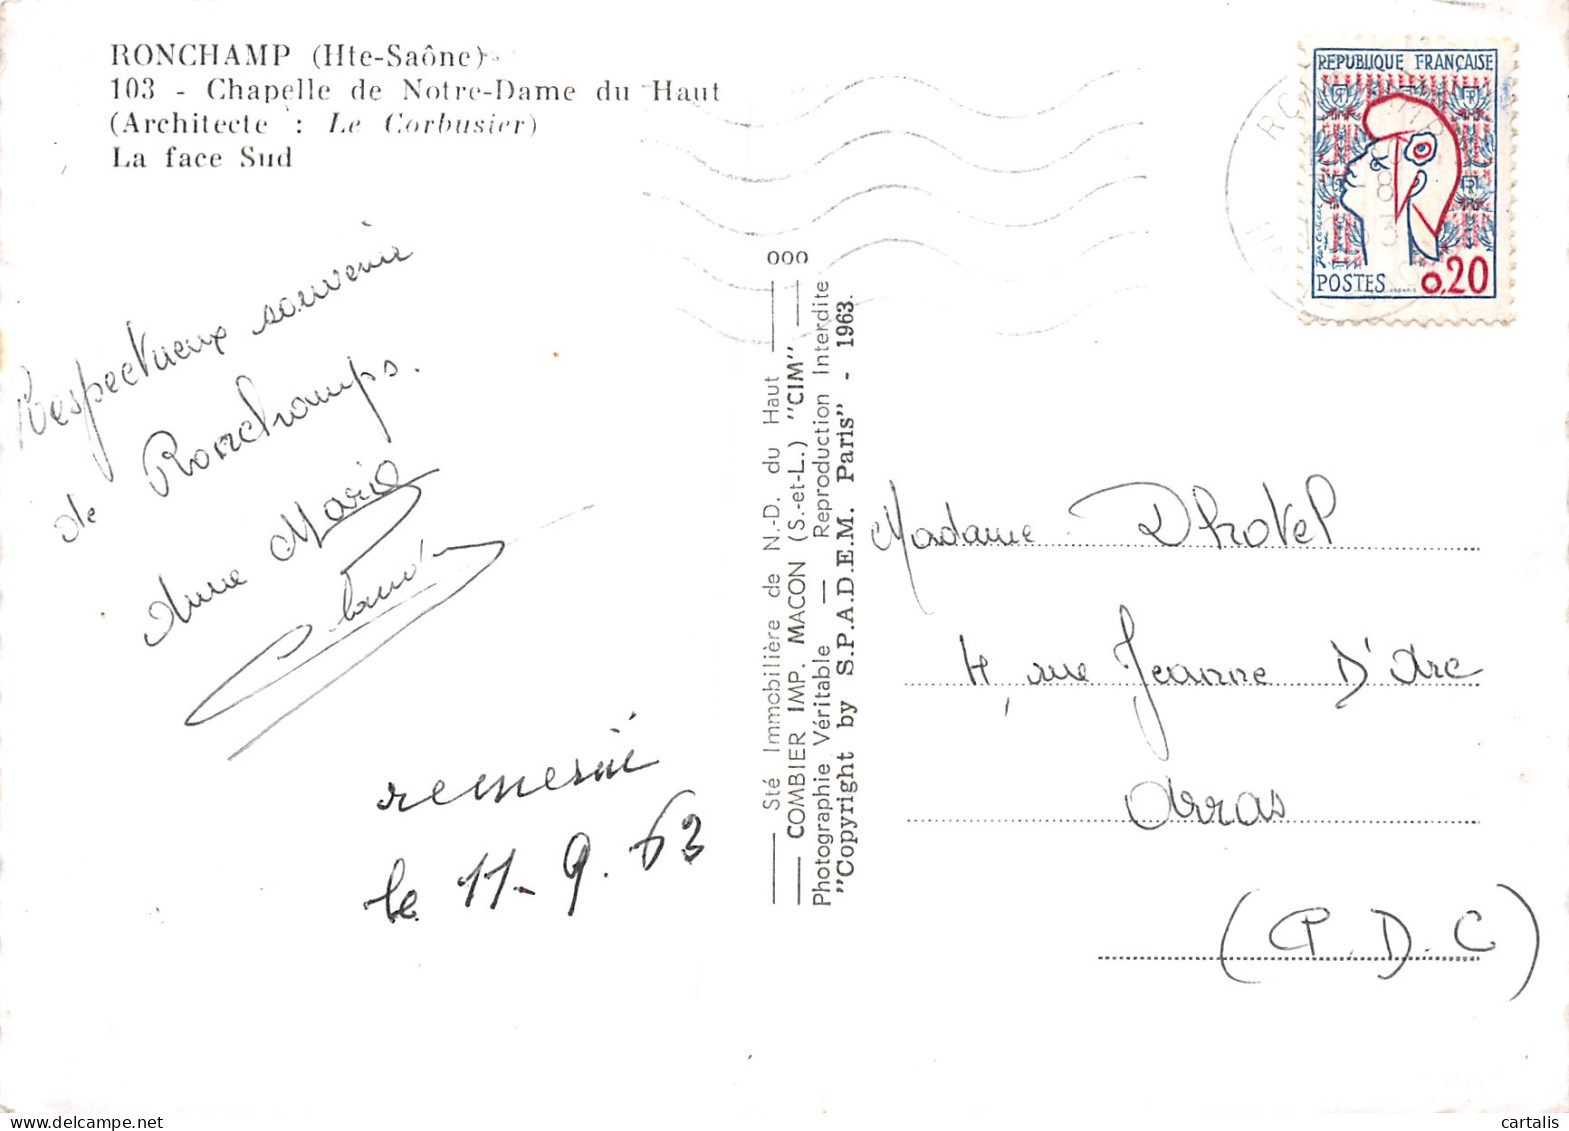 RONCHAMP (Hte-Saône)
103 - Chapelle de Notre-Dame du Haut
(Architecte : Le Corbusier)
La face Sud
Respectueux souvenir
de Ronchamps.
Anne Marie
remercié
le 11-9.63
000
Sté Immobilière de N.-D. du Haut
COMBIER IMP. MACON (S.-et-L.) "CIM"
Photographie Véritable — Reproduction Interdite
"Copyright by S.P.A.D.E.M. Paris" - 1963.
REPUBLIQUE FRANÇAISE
POSTES 0,20
Madame Dhotel
4, rue Jeanne D'Arc
Arras
(P.D.C)
cartalis